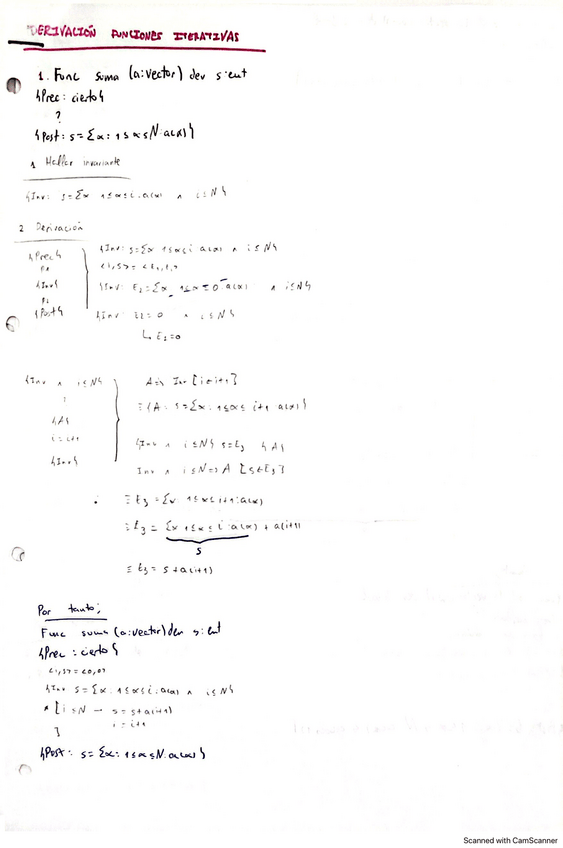 DERIVACIÓN FUNCIONES ITERATIVAS
1. Func suma (a:vector) dev s:ent
{Prec: cierto}
?
{Post: s = Σα: 1≤α≤N: a(α)}
1 Hallar invariante
{Inv: s=Σα 1≤α≤i: a(α) ∧ i≤N}
2 Derivación
{Prec}
{Inv}
{Post}
{Inv: s=Σα 1≤α≤i a(α) ∧ i≤N}
{Inv: E₂=Σα 1≤α≤0 a(α) ∧ i≤N}
{Inv: E2=0 ∧ i≤N}
↳ E₂=0
{Inv ∧ i≤N}
{A}
i=i+1
{Inv}
A⇒ Inv [i←i+1]
≡{A: s=Σα: 1≤α≤ i+1 a(α)}
{Inv ∧ i≤N} s=E₃ {A}
Inv ∧ i≤N ⇒ A [s←E₃]
≡ E₃ = Σα 1≤α≤i+1: a(α)
≡ E₃ = Σα 1≤α≤i: a(α) + a(i+1)
s
≡ E₃ = s+a(i+1)
Por tanto;
Func suma (a:vector) dev s:ent
{Prec: cierto}
<i,s> = <0,0>
{Inv s=Σα: 1≤α≤i: a(α) ∧ i≤N}
* [i≤N → s=s+a(i+1)
i=i+1
]
{Post: s=Σα: 1≤α≤N: a(α)}
Scanned with CamScanner